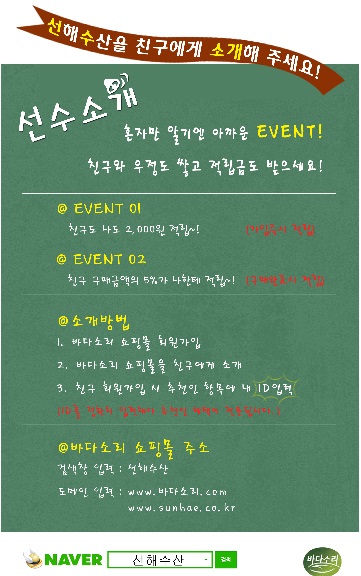 선해수산을 친구에게 소개해 주세요!
선수소개
혼자만 알기엔 아까운 EVENT!
친구와 우정도 쌓고 적립금도 받으세요!
@ EVENT 01
친구도 나도 2,000원 적립~! (가입즉시 적립)
@ EVENT 02
친구 구매금액의 5%가 나한테 적립~! (구매완료시 적립)
@소개방법
1. 바다소리 쇼핑몰 회원가입
2. 바다소리 쇼핑몰을 친구에게 소개
3. 친구 회원가입 시 추천인 항목에 내 ID입력
(ID를 정확히 입력해야
@바다소리 쇼핑몰 주소
검색창 입력 : 선해수산
도메인 입력 : www.바다소리.com
www.sunhae.co.kr
NAVER 선해수산 검색
바다소리